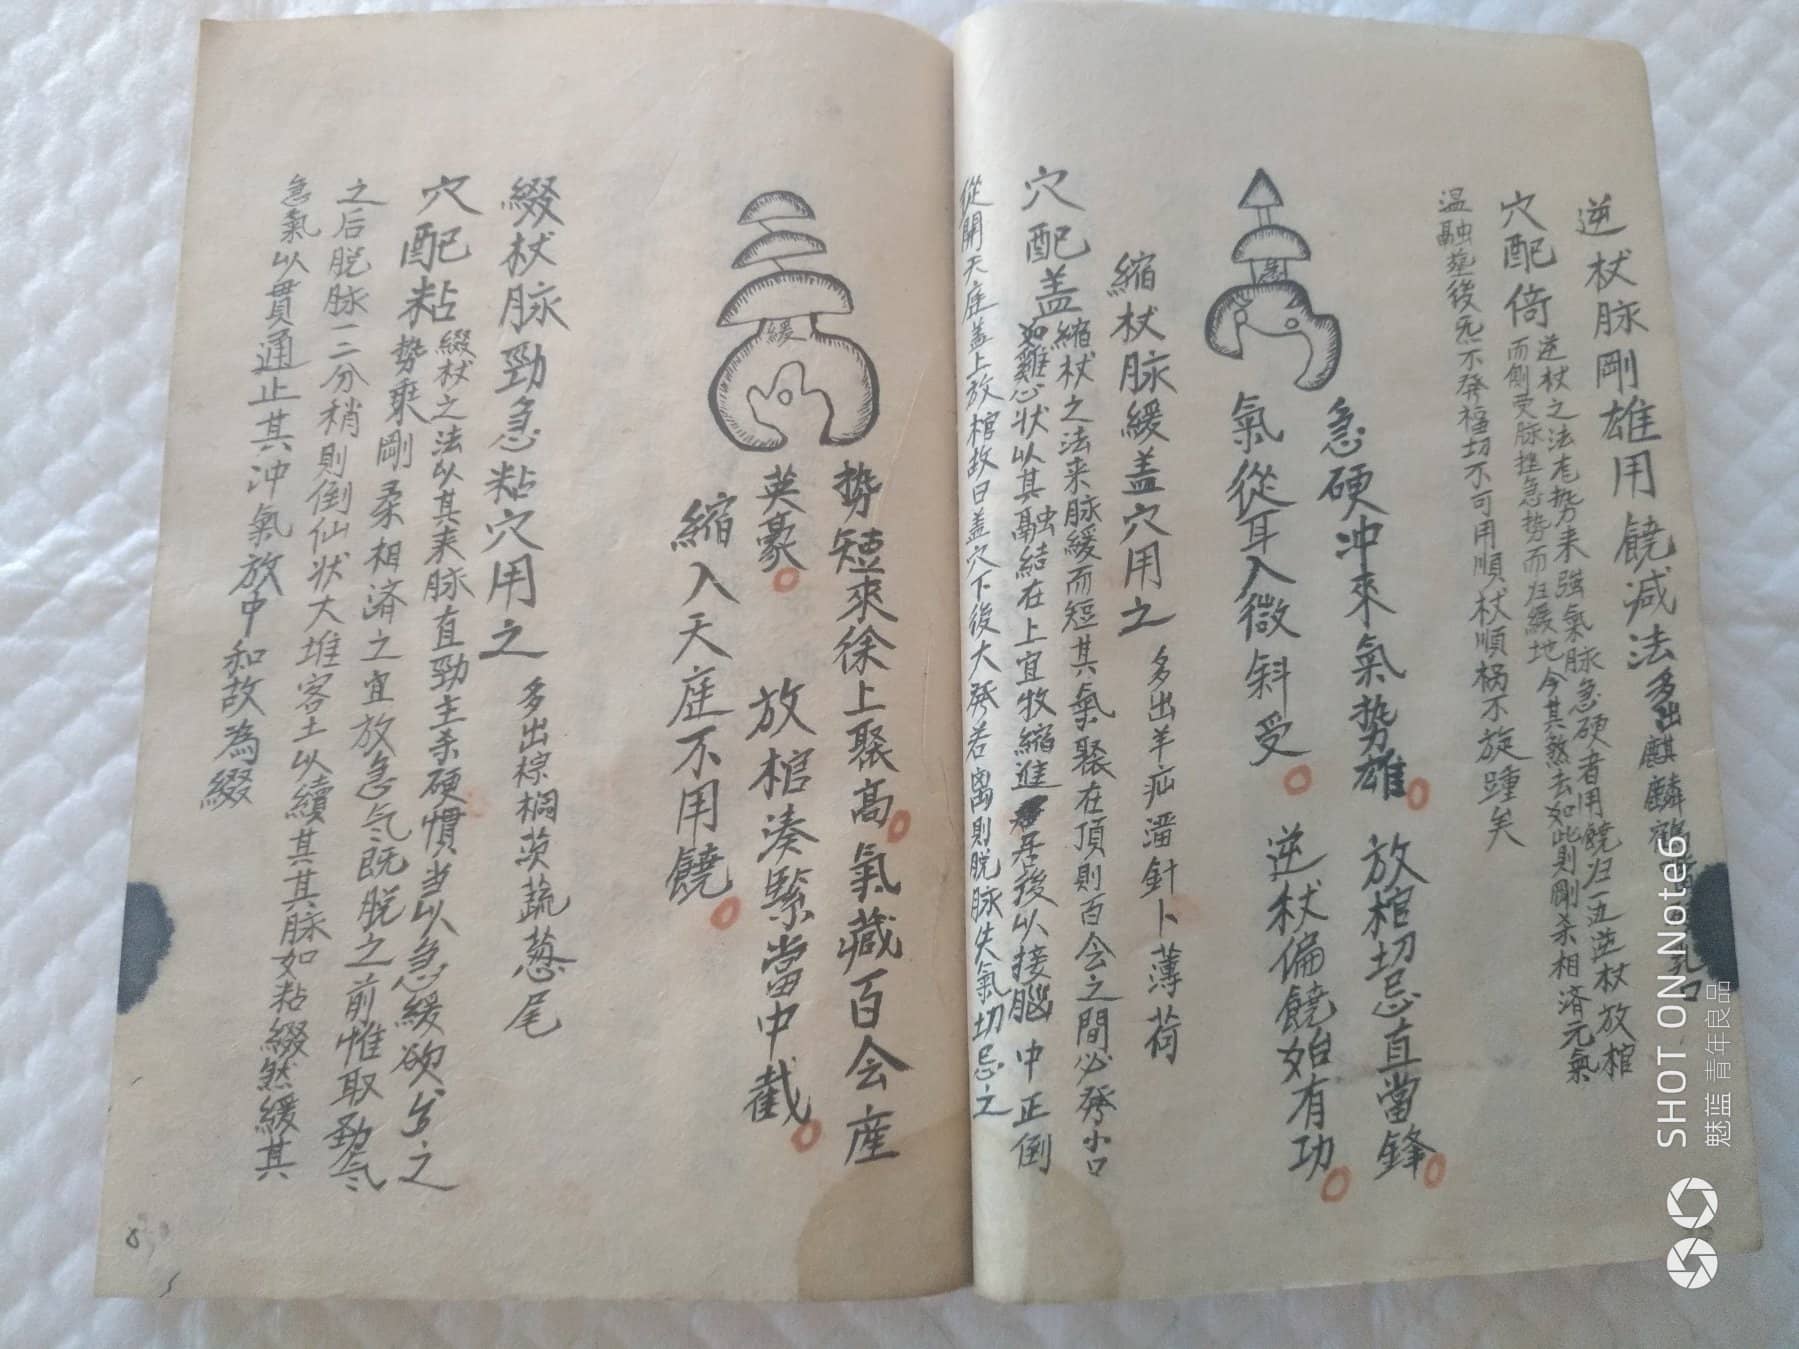 逆杖脉剛雄用饒减法多出麒麟
穴配倚逆杖之法老势来强氣脉急硬者用饒归一五逆杖放棺
而侧受脉挫急势而归緩地令其煞去如此則剛柔相済元氣
温融塟後旡不癹福切不可用順杖順祸不旋踵矣
急
急硬冲來氣势雄
放棺切忌直當鋒
氣從耳入微斜受
逆杖偏饒始有功
縮杖脉緩盖穴用之多出羊疝溜針卜薄荷
穴配盖縮杖之法来脉緩而短其氣聚在頂則百会之間必癹小口
如雞心状以其融結在上宜牧縮進丟後以接腦中正倒
從開天庭盖上放棺故曰盖穴下後大癹若离則脱脉失氣切忌之
緩
势短來徐上聚高
氣藏百会産
英豪
放棺湊緊當中截
縮入天庭不用饒
綴杖脉勁急粘穴用之多出棕榈茨蔬葱尾
穴配粘綴杖之法以其来脉直勁主杀硬慣当以急緩砍步之
势乘剛柔相済之宜放急气既脱之前惟取勁气
之后脱脉二三分稍則倒仙状大堆客土以續其其脉如粘綴然緩其
急氣以貫通止其冲氣放中和故為綴
SHOT ON Note6
魅蓝 青年良品